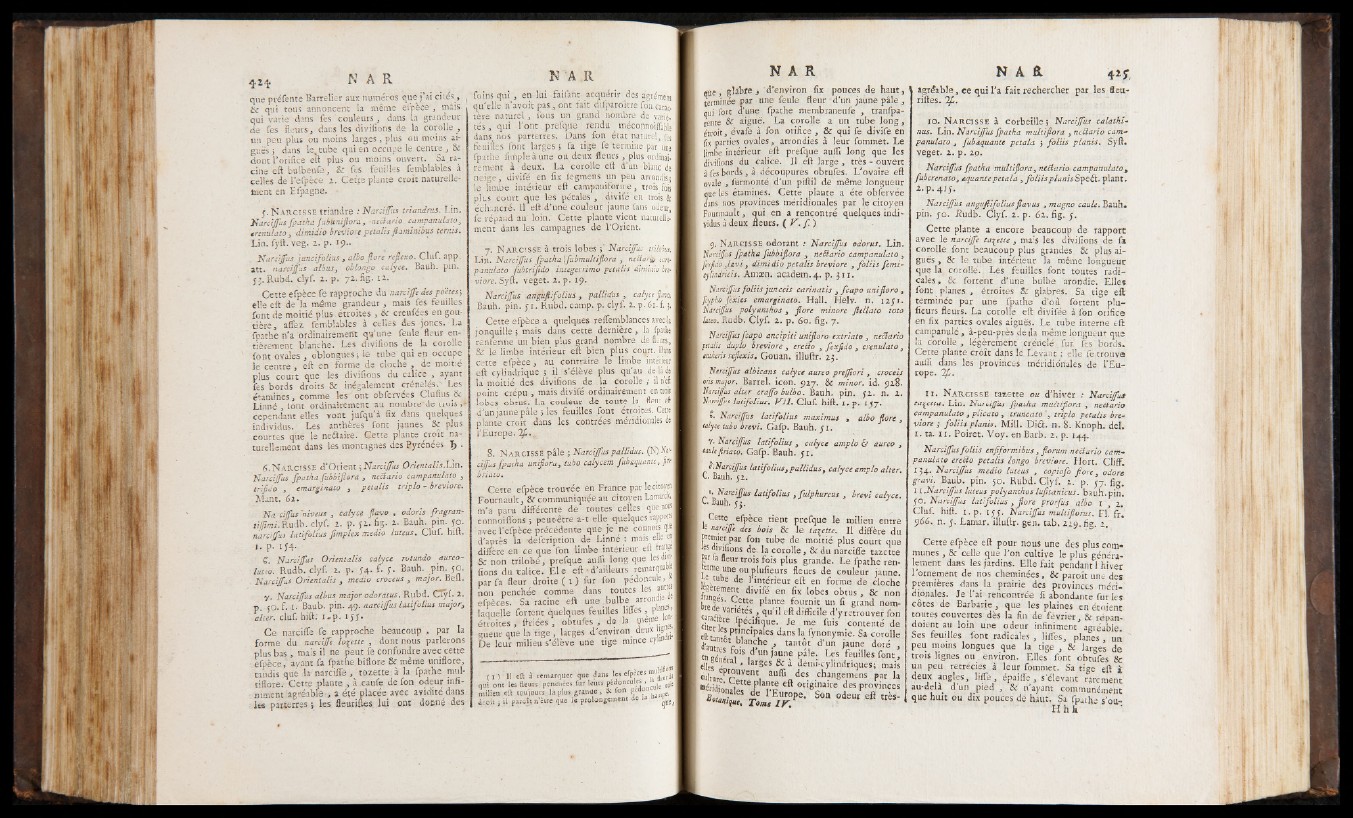 424 N A R
que présente Barrelier aux numéros que j'ai cités,
& qui tous annoncent la même espèce, mais
qui varie dans ses couleurs, dans la grandeur
de ses fleurs, dans les divisions de la corolle,
un peu plus ou moins larges, plus ou moins ai-
gues; dans le tube qui en occupe le centre, &
dont l'orifice est plus ou moins ouvert. Sa ra-
cine est bulbeuse, & ses feuilles semblables à
celles de l'espèce 2. Cette plante croît naturelle-
ment en Espagne.
5. NARCISSE triandre : Narcissus triandrus. Lin.
Narcissus spatha subuniflora, nectario campanulato,
crenulato, dimidio breviore petalis staminibus ternis.
Lin. syst. veg. 2. p. 19.
Narcissus juncifolius, albo flore reflexo. Cluf. app.
alt. narcissus albus, oblongo calyce. Bauh. pin.
53. Rubd. clyf. 2. p. 72. fig. 12.
Cette espèce se rapproche du narcisse des poètes;
elle est de la même grandeur, mais ses feuilles
sont de moitié plus étroites, & creusées en gou-
tière, assez semblables à celles des joncs. La
spathe n'a ordinairement qu'une seule fleur en-
tièrement blanche. Les divisions de la corolle
sont ovales, oblongues; le tube qui en occupe
le centre, est en forme de cloche, de moitié
plus court que les divisions du calice, ayant
ses bords droits & inégalement crénelés. Les
étamines, comme les ont observées Clusius &
Linné, sont ordinairement au nombre de trois;
cependant elles vont jusqu'à six dans quelques
individus. Les anthères sont jaunes & plus
courtes que le nectaire. Cette plante croît na-
turellement dans les montagnes des Pyrénées.
6. NARCISSE d'Orient; Narcissus Orientalis. Lin.
Narcissus spatha subbiflora, nectario campanulato,
trifido, emarginato, petalis triplo-breviore.
Mant. 62.
Narcissus niveus, calyce flavo, odoris fragran-
tissimi. Rudb. clyf. 2. p. 52. fig. 2. Bauh. pin. 50.
narcissus latifolius simplex medio luteus. Cluf. hist.
1. p. 154.
C. Narcissus Orientalis calyce rotundo aureo-
luteo. Rudb. clyf. 2. p. 54. f. 5. Bauh. pin. 50.
Narcissus Orientalis, medio croceus, major. Besl.
γ. Narcissus albus major odoratus. Rubd. Clyf. 2.
p. 50. f. 1. Baub. pin. 49. narcissus latifolius major,
alter. cluf. hist. 1. p. 155.
Ce narcisse se rapproche beaucoup, par la
forme du narcisse tazette, dont nous parlerons
plus bas, mais il ne peut se confondre avec cette
espèce, ayant sa spathe biflore & même uniflore,
tandis que la narcisse, tozette à la spathe mul-
tiflore. Cette plante, à cause de son odeur infi-
niment agréable, a été placée avec avidité dans
les parterres; les fleuristes lui ont donné des
N A R
soins qui, en lui faisant acquérir des agrémens
qu'elle n'avoit pas, ont fait disparoître son carac-
tère naturel, sous un grand nombre de varié-
tés, qui l'ont presque rendu méconnoissable
dans nos parterres. Dans son état naturel, ses
feuilles sont larges; sa tige se termine par une
spathe simple à une ou deux fleurs, plus ordinai-
rement à deux. La corolle est d'un blanc de
neige, divisé en six segmens un peu arrondis;
le limbe intérieur est campaniforme, trois fois
plus court que les pétales, divisé en trois &
échancré. Il est d'une couleur jaune sans odeur,
se répand au loin. Cette plante vient naturelle-
ment dans les campagnes de l'Orient.
7. NARCISSE à trois lobes; Narcissus trilobus.
Lin. Narcissus spatha submultiflora, nectario cam-
panulato subtrifido integerrimo petalis dimidio bre-
viore. Syst. veget. 2. p. 19.
Narcissus angustifolius, pallidus, calyce flavo.
Bauh. pin. 51. Rubd. camp. p. clyf. 2. p. 61. f. 3.
Cette espèce a quelques ressemblances avec la
jonquille; mais dans cette dernière, la spathe
renferme un bien plus grand nombre de fleurs,
& le limbe intérieur est bien plus court. Dans
cette espèce, au contraire le limbe intérieur
est cylindrique; il s'élève plus qu'au delà de
la moitié des divisions de la corolle; il n'est
point crépu, mais divisé ordinairement en trois
lobes obtus. La couleur de toute la fleur est
d'un jaune pâle; les feuilles sont étroites. Cette
plante croît dans les contrées méridionales de
l'Europe.
8. NARCISSE pâle; Narcissus pallidus. (N) Nar-
cissus spatha uniflora, tubo calycem subæquante,
striato.
Cette espèce trouvée en France par le citoyen
Fournault, & communiquée au citoyen Lamarck,
m'a paru différente de toutes celles que nous
connoissons; peut-être a-t-elle quelques rapports
avec l'espèce précédente que je ne connois que
d'après la description de Linné: mais elle en
diffère en ce que son limbe intérieur est frangé
& non trilobé, presque aussi long que les divi-
sions du calice. Elle est d'ailleurs remarquable
par sa fleur droite (1) sur son pédoncule, &
non penchée comme dans toutes les autres
espèces. Sa racine est une bulbe arrondie de
laquelle sortent quelques feuilles lisses, planes,
étroites, striées, obtuses, de la même lon-
gueur que la tige, larges d'environ deux lignes.
De leur milieu s'élève une tige mince cylindri-
(1) Il est à remarquer que dans les espèces multiflores
qui ont les fleurs penchées sur leurs pédoncules, la fleur du
milieu est toujours la plus grande, & son pédoncule
droit; il paroît n'être que le prolongement de la hampe.
que,
N A R
que, glabre, d'environ six pouces de haut,
terminée par une seule fleur d'un jaune pâle,
qui sort d'une spathe membraneuse, transpa-
rente & aigue. La corolle a un tube long,
étroit, évasé à son orifice, & qui se divise en
six parties ovales, arrondies à leur sommet. Le
limbe intérieur est presque aussi long que les
divisions du calice. Il est large, très-ouvert
à ses bords, à découpures obtuses. L'ovaire est
ovale, surmonté d'un pistil de même longueur
que les étamines. Cette plante a été observée
dans nos provinces méridionales par le citoyen
Fournault, qui en a rencontré quelques indi-
vidus à deux fleurs. (V. s.)
9. NARCISSE odorant : Narcissus odorus. Lin.
Narcissus spatha subuniflora, nectario campanulato,
sexfido lævi, dimidio petalis breviore, foliis semi-
cylindricis. Amæn. academ. 4. p. 311.
Narcissus foliis junceis carinatis, scapo unifloro,
scypho sexies emarginato. Hall. Helv. n. 1251.
Narcissus polyanthos, flore minore stellato toto
luteo. Rudb. Clyf. 2. p. 60. fig. 7.
Narcissus scapo ancipiti unifloro extriato, nectario
petalis duplo breviore, erecto, sexfido, crenulato,
radicis reflexis. Gouan. illustr. 23.
Narcissus albicans calyce aureo pressiori, croceis
oris major. Barrel. icon. 927. & minor. id. 928.
Narcissus alter crasso bulbo. Bauh. pin. 52. n. 2.
Narcissus latifolius. VII. Cluf. hist. 1. p. 157.
C. Narcissus latifolius maximus, albo flore,
calyce tubo brevi. Gasp. Bauh. 51.
γ. Narcissus latifolius, calyce amplo & aureo,
caule striato. Gasp. Bauh. 51.
δ. Narcissus latifolius, pallidus, calyce amplo alter.
C. Bauh. 52.
ε. Narcissus latifolius, sulphureus, brevi calyce.
C. Bauh. 53.
Cette espèce tient presque le milieu entre
le narcisse des bois & le tazette. Il diffère du
premier par son tube de moitié plus court que
les divisions de la corolle, & du narcisse tazette
par sa fleur trois fois plus grande. Le spathe ren-
ferme une ou plusieurs fleurs de couleur jaune.
Le tube de l'intérieur est en forme de cloche
légèrement divisé en six lobes obtus, & non
frangés. Cette plante fournit un si grand nom-
bre de variétés, qu'il est difficile d'y retrouver son
caractère spécifique. Je me suis contenté de
citer les principales dans la synonymie. Sa corolle
est tantôt blanche, tantôt d'un jaune doré,
d'autres fois d'un jaune pâle. Les feuilles sont,
en général, larges & à demi-cylindriques; mais
elles éprouvent aussi des changemens par la
culture. Cette plante est originaire des provinces
méridionales de l'Europe. Son odeur est très-
Botanique, Tome IV.
N A R 425
agréable, ce qui l'a fait rechercher par les fleu-
ristes.
10. NARCISSE à corbeille; Narcissus calathi-
nus. Lin. Narcissus spatha multiflora, nectario cam-
panulato, subæquante petala; foliis planis. Syst.
veget. 2. p. 20.
Narcissus spatha multiflora, nectario campanulato,
subcrenato, æquante petala, foliis planis Spect. plant.
2. p. 415.
Narcissus angustifolius flavus, magno caule. Bauh.
pin. 50. Rudb. Clyf. 2. p. 62. fig. 5.
Cette plante a encore beaucoup de rapport
avec le narcisse tazette, mais les divisions de sa
corolle sont beaucoup plus grandes & plus ai-
gués, & le tube intérieur la même longueur
que la corolle. Les feuilles sont toutes radi-
cales, & sortent d'une bulbe arondie. Elles
sont planes, étroites & glabres. Sa tige est
terminée par une spathe d'où sortent plu-
sieurs fleurs. La corolle est divisée à son orifice
en six parties ovales aiguës. Le tube interne est
campanulé, à-peu-près de la même longueur que
la corolle, légèrement crénelé sur ses bords.
Cette plante croît dans le Levant; elle se trouve
aussi dans les provinces méridionales de l'Eu-
rope.
11. NARCISSE tazette ou d'hiver : Narcissus
tazetta. Lin. Narcissus spatha multiflora, nectario
campanulato, plicato, truncato, triplo petalis bre-
viore; foliis planis. Mill. Dict. n. 8. Knoph. del.
1. ta. 11. Poiret. Voy. en Barb. 2. p. 144.
Narcissus foliis ensiformibus, florum nectario cam-
panulato erecto petalis longo breviore. Hort. Cliff.
134. Narcissus medio luteus, copioso flore, odore
gravi. Baub. pin. 50. Rubd. Clyf. 2. p. 57. fig.
11. Narcissus luteus polyanthos lusitanicus. bauh. pin.
50. Narcissus latifolius, flore prorsus albo 1, 2.
Cluf. hist. 1. p. 155. Narcissus multiflorus. Fl. fr.
966. n. 5. Lamar. illustr. gen. tab. 229. fig. 2.
Cette espèce est pour nous une des plus com-
munes, & celle que l'on cultive le plus généra-
lement dans les jardins. Elle fait pendant l'hiver
l'ornement de nos cheminées, & paroît une des
premières dans la prairie des provinces méri-
dionales. Je l'ai rencontrée si abondante sur les
côtes de Barbarie, que les plaines en étoient
toutes couvertes dès la fin de février, & répan-
doient au loin une odeur infiniment agréable.
Ses feuilles sont radicales, lisses, planes, un
peu moins longues que la tige, & larges de
trois lignes ou environ. Elles sont obtuses &
un peu retrécies à leur sommet. Sa tige est à
deux angles, lisse, épaisse, s'élevant rarement
au-delà d'un pied, & n'ayant communément
que huit ou dix pouces de haut. Sa spathe s'ou-
H h h